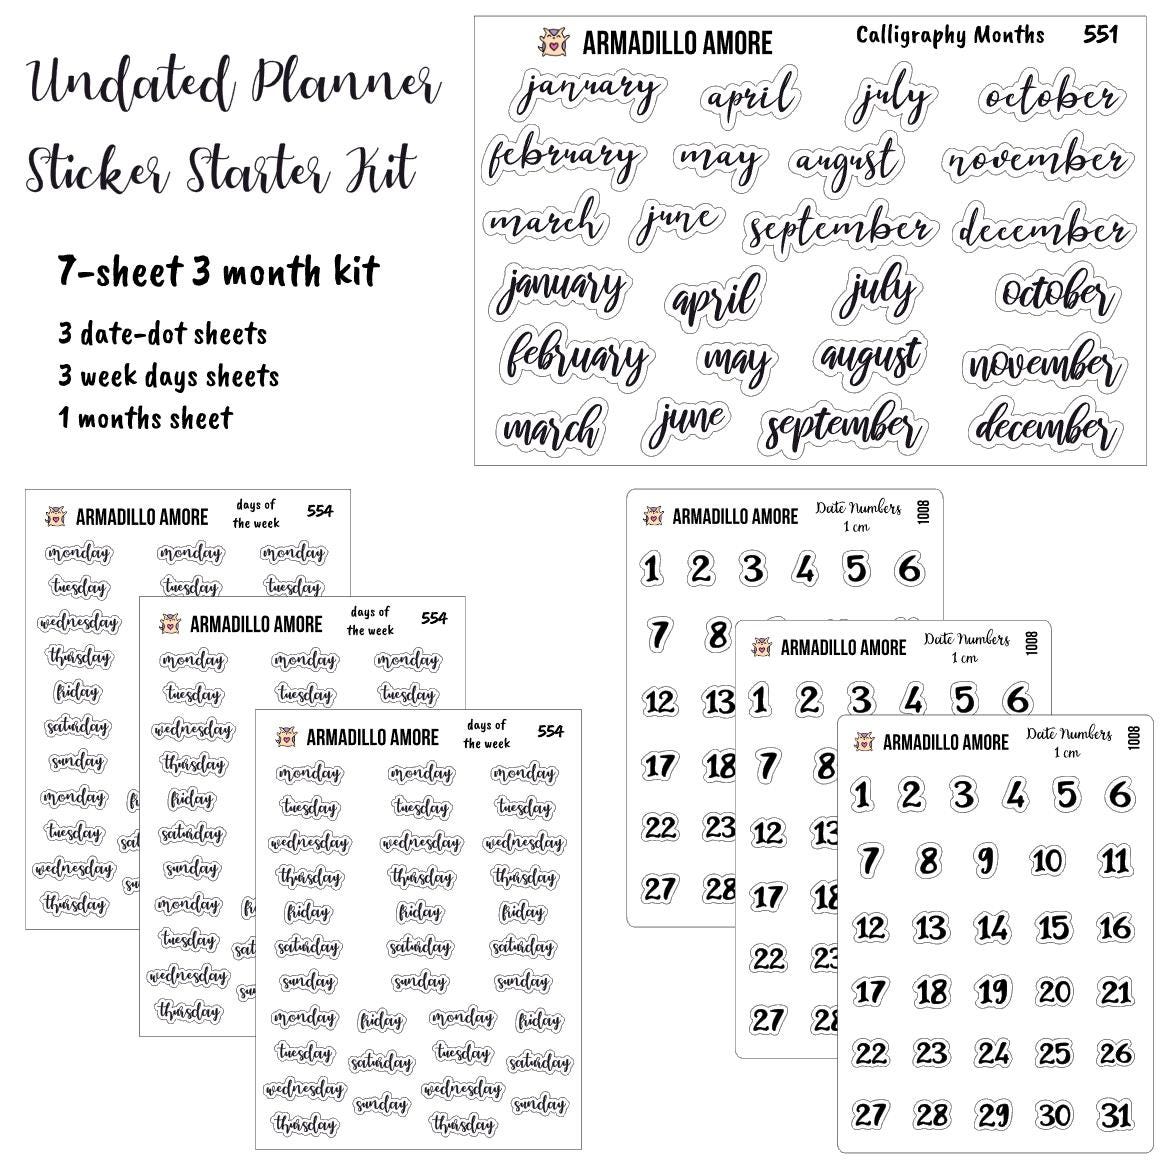 Undated Planner
Sticker Starter Kit
7-sheet 3 month kit
3 date-dot sheets
3 week days sheets
1 months sheet
ARMADILLO AMORE Calligraphy Months 551
january april july october
february may august november
march june september december
january april july october
february may august november
march june september december
ARMADILLO AMORE days of the week 554
monday monday monday
tuesday tuesday tuesday
wednesday
thursday
friday
saturday
sunday
monday
tuesday
wednesday
thursday
ARMADILLO AMORE days of the week 554
monday monday monday
tuesday tuesday tuesday
wednesday
thursday
friday
saturday
sunday
monday
tuesday
wednesday
thursday
ARMADILLO AMORE days of the week 554
monday monday monday
tuesday tuesday tuesday
wednesday wednesday wednesday
thursday thursday thursday
friday friday friday
saturday saturday saturday
sunday sunday sunday
monday friday monday friday
tuesday saturday tuesday saturday
wednesday sunday wednesday sunday
thursday thursday
ARMADILLO AMORE Date Numbers 1 cm 1008
1 2 3 4 5 6
7 8
12 13
17 18
22 23
27 28
ARMADILLO AMORE Date Numbers 1 cm 1008
1 2 3 4 5 6
7 8
12 13
17 18
22 23
27 28
ARMADILLO AMORE Date Numbers 1 cm 1008
1 2 3 4 5 6
7 8 9 10 11
12 13 14 15 16
17 18 19 20 21
22 23 24 25 26
27 28 29 30 31